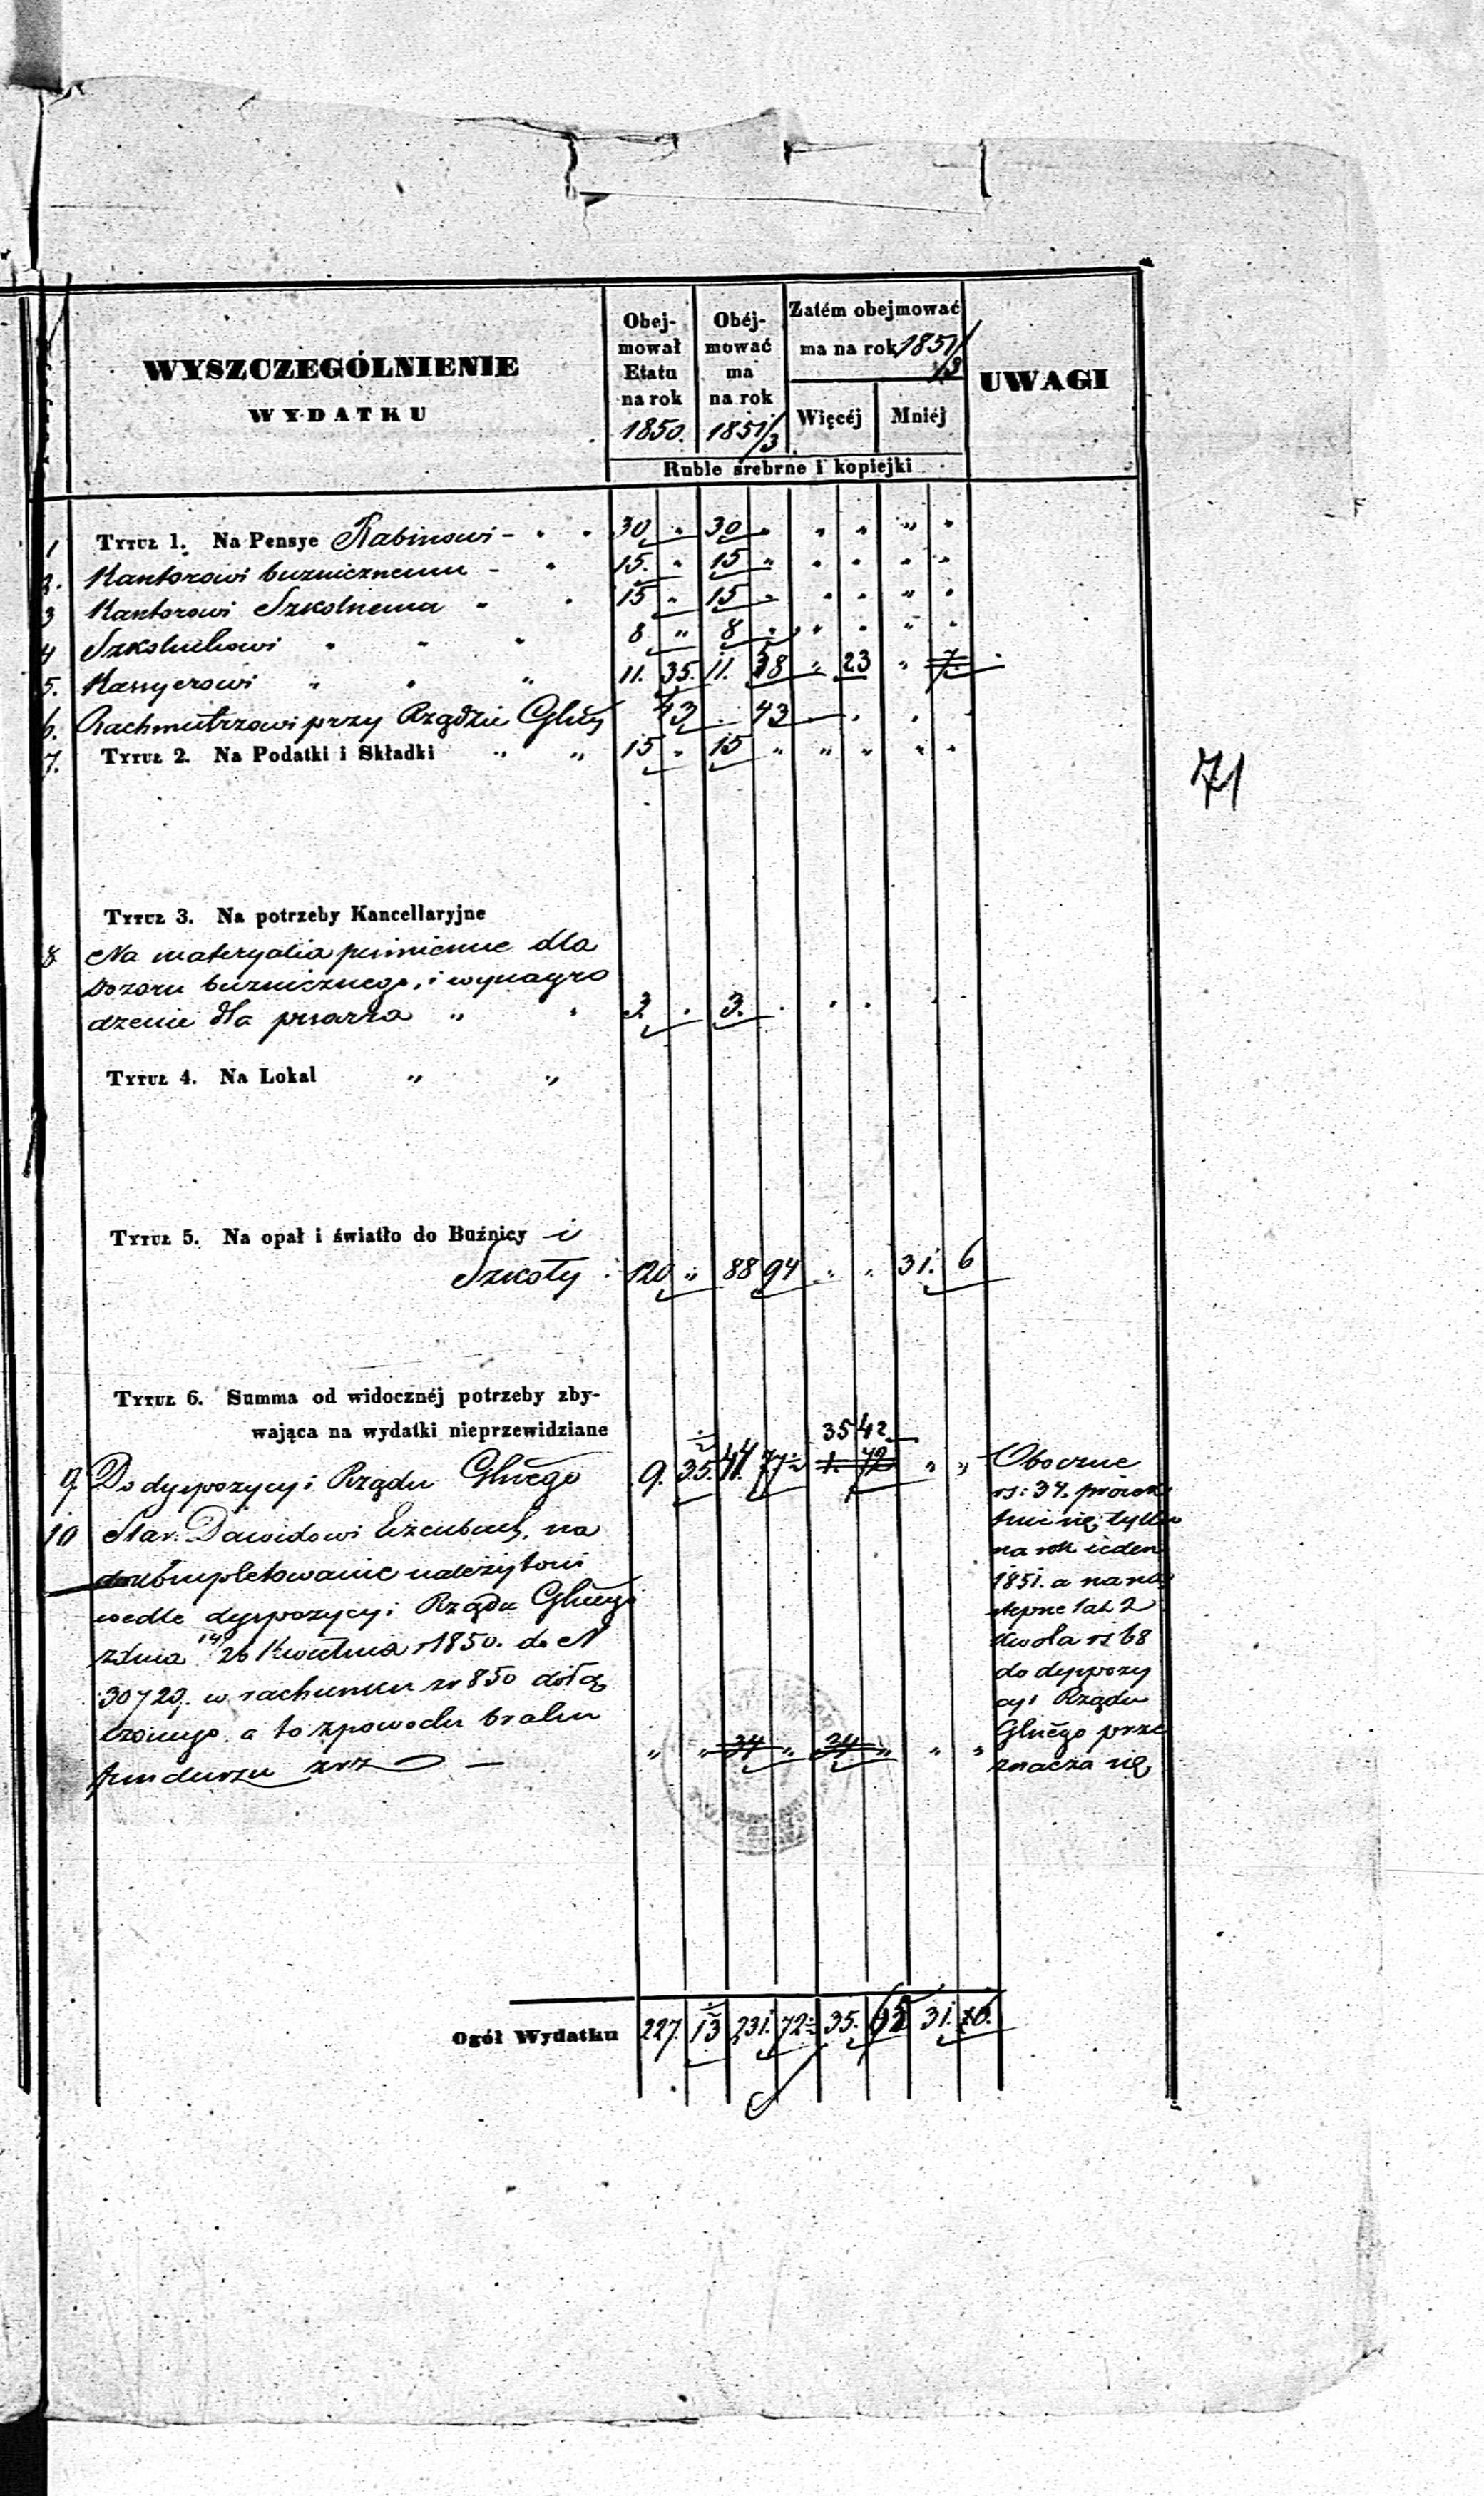 WYSZCZEGÓLNIENIE
WYDATKU
Obej-
mował
Etatu
na rok
1850.
Obéj-
mować
ma
na rok
1851/3
Zatém obejmować
ma na rok 1851/3
Więcéj Mniéj
UWAGI
Ruble srebrne i kopiejki
1 Tytuł 1. Na Pensye Rabinowi - " " 30 " 30 " " " " "
2. Kantorowi buznicznemu - " 15. " 15 " " " " "
3 Kantorowi Szkolnemu " " 15 " 15 " " " " "
4 Szkolnikowi " " " 8 " 8 " " " " "
5. Kassyerowi " " " 11. 35. 11. 58 " 23 " 7.
6. Rachmistrzowi przy Rządzie Glnym 43 . 43 . . .
7. Tytuł 2. Na Podatki i Składki " " 15 " 15 " " " " "
71
Tytuł 3. Na potrzeby Kancellaryjne
8 Na materyalia piśmienne dla
Dozoru buznicznego, i wynagro
dzenie dla pisarza " " 3. . 3. . . . . .
Tytuł 4. Na Lokal " "
Tytuł 5. Na opał i światło do Buźnicy i
Szkoły 120 " 88 94 " " 31. 6
Tytuł 6. Summa od widocznéj potrzeby zby-
wająca na wydatki nieprzewidziane
35 42
9. Do dyspozycyi Rządu Głnego 9. 35. 44. 77 1. 42 " "
10 Star. Dawidowi Eizenbach, na
skompletowanie należytości
wedle dyspozycyi Rządu Głnego
z dnia 14/26 Kwietnia 1850. do N
30729. w rachunku z r 850 dołą
czonego a to z powodu braku
funduszu " " 34 " 34 " " "
Oboczne
rs: 34.
tylko
na rok ieden
1851. a na na
stępne lat 2
kwota rs 68
do dyspozy
cyi Rządu
Głnego prze
znacza się
Ogół Wydatku 227. 13 231. 72 35. 65 31. 6.